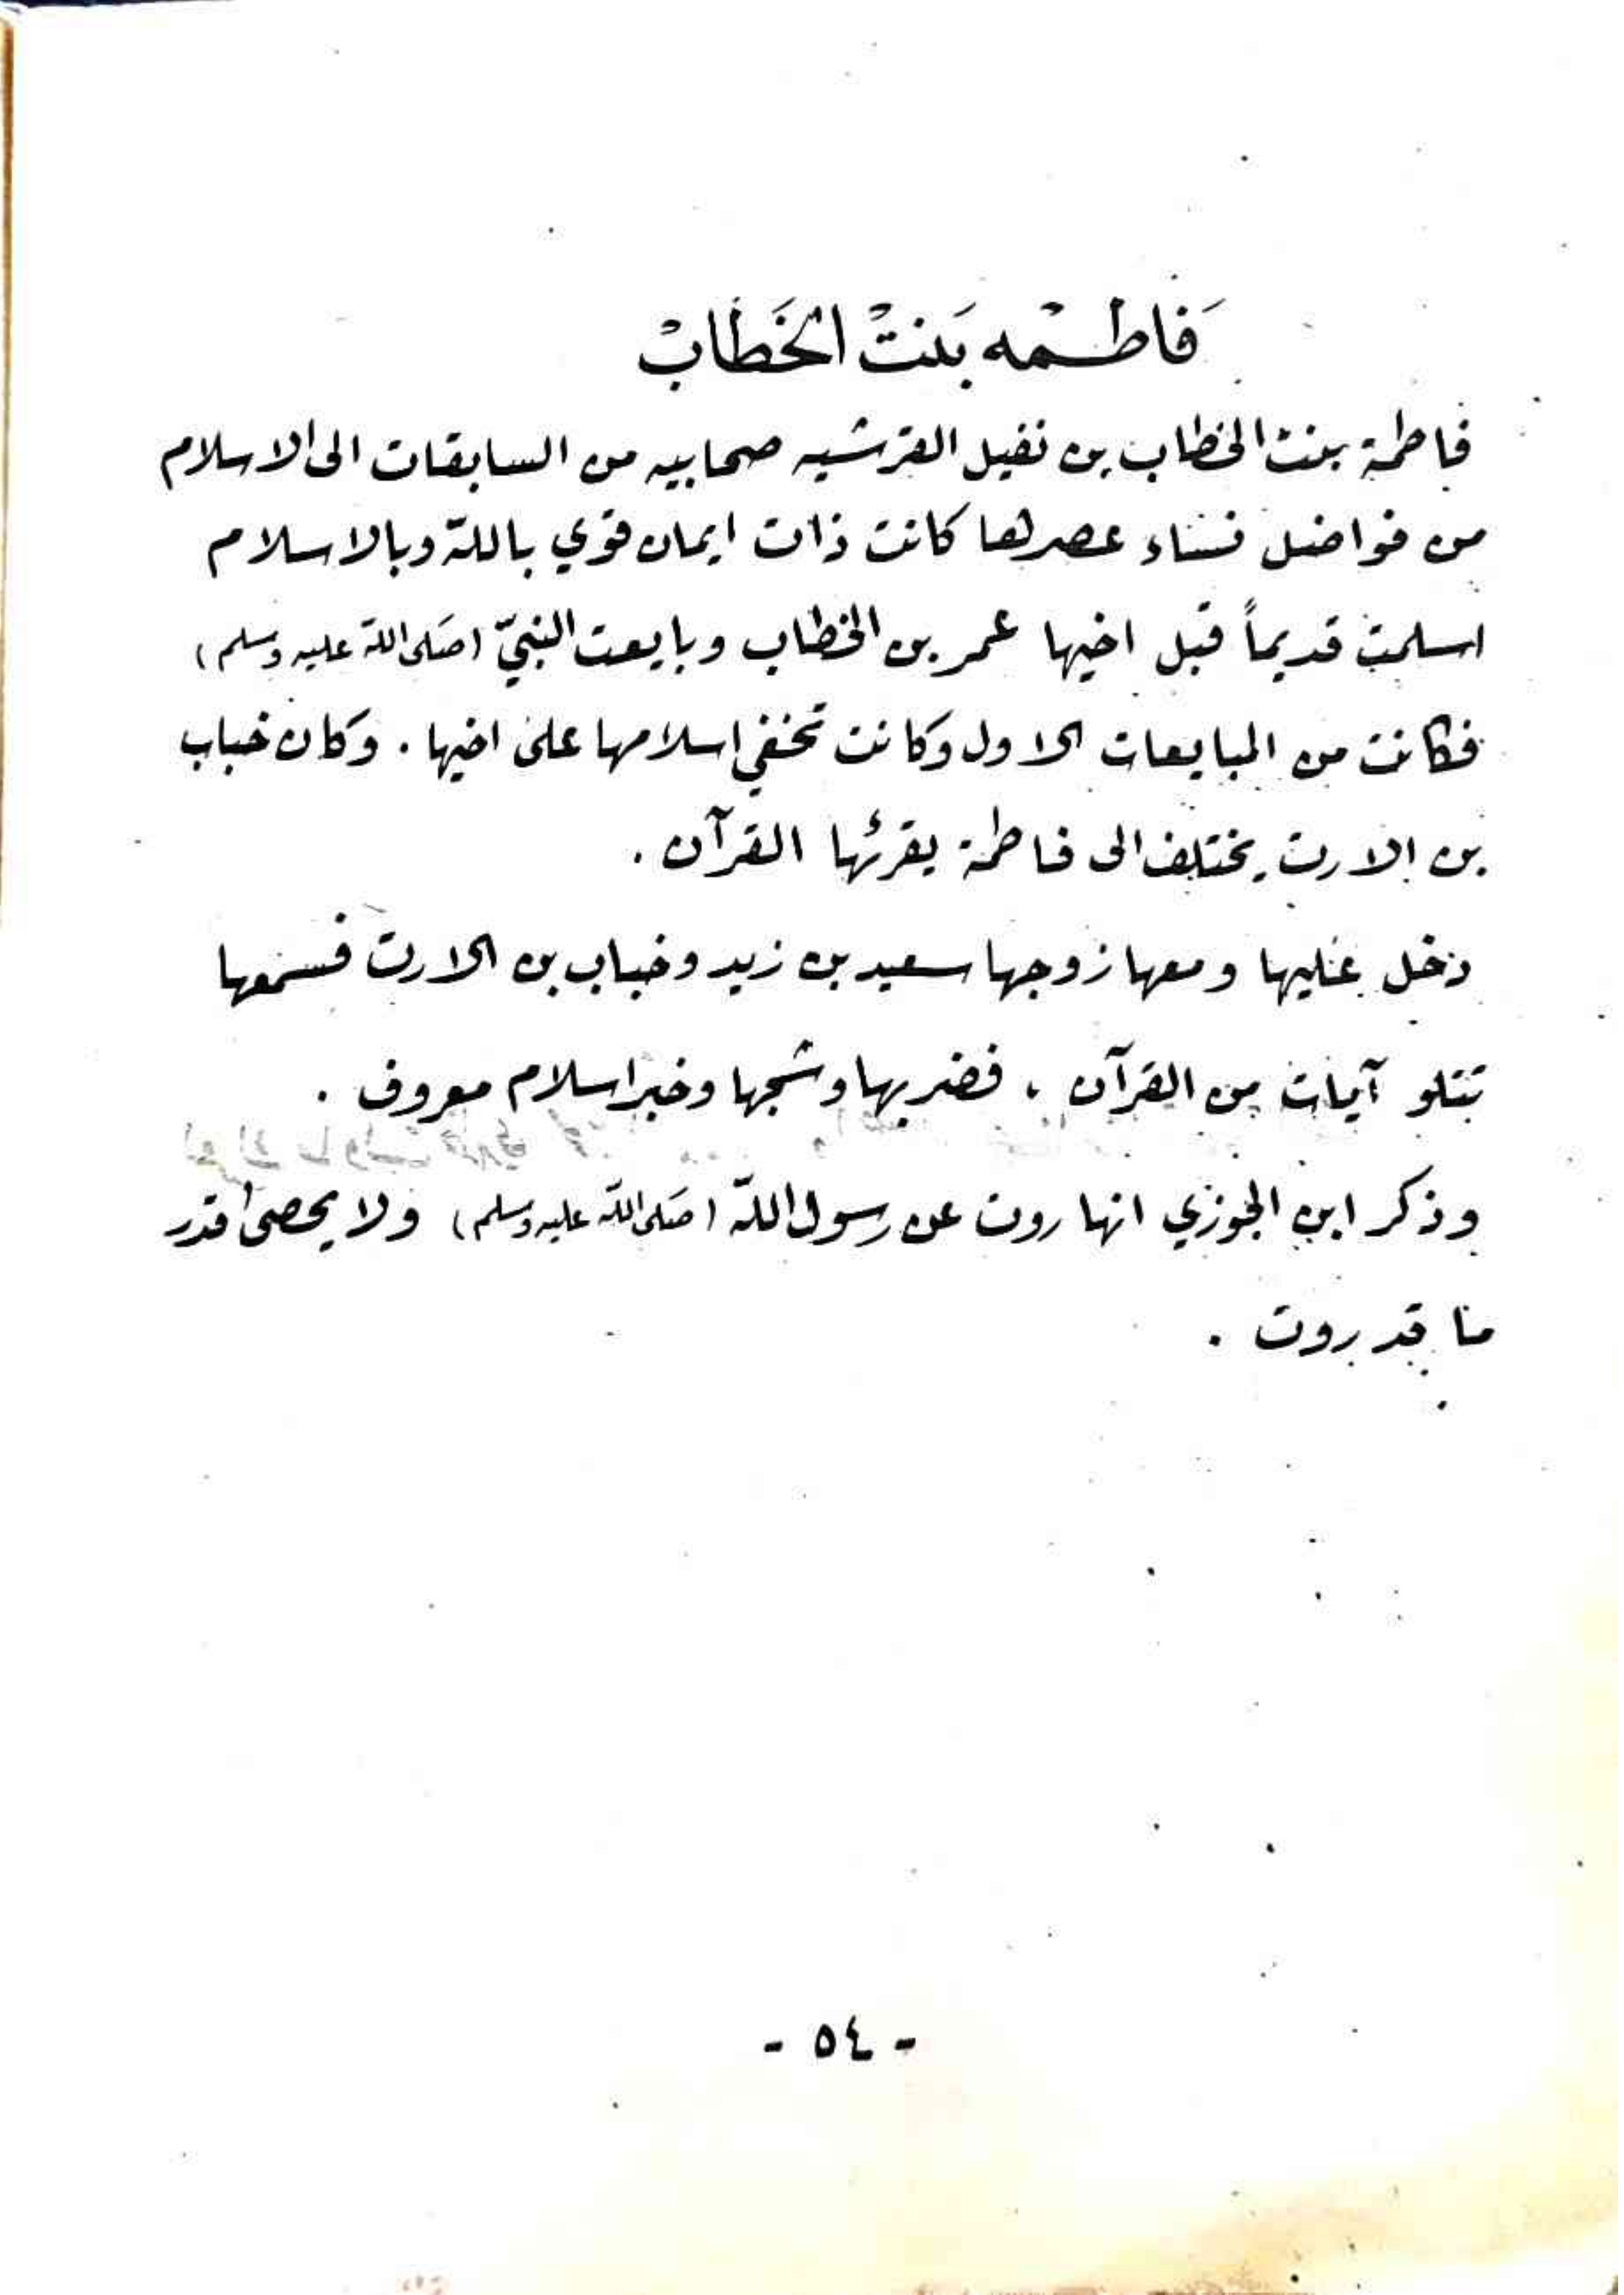 فَاطِمه بَنتْ الخَطَابْ
فاطمة بنت الخطاب بن نفيل القرشيه صحابيه من السابقات الى الاسلام
من فواضل نساء عصرها كانت ذات ايمان قوي باللّه وبالاسلام
اسلمت قديماً قبل اخيها عمر بن الخطاب وبايعت النبيّ (صَلى اللّه عليه وسلم)
فكانت من المبايعات الاول وكانت تخفي اسلامها على اخيها . وكان خباب
بن الارت يختلف الى فاطمة يقرئها القرآن .
دخل عليها ومعها زوجها سعيد بن زيد وخباب بن الارت فسمعها
تتلو آيات من القرآن ، فضربها وشجها وخبر اسلام معروف .
وذكر ابن الجوزي انها روت عن رسول اللّه (صَلى اللّه عليه وسلم) ولا يحصى قدر
ما قد روت .
- ٥٤ -